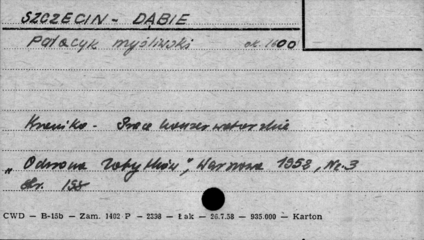 SZCZECIN - DĄBIE
Pałacyk myśliwski ok. 1400
Kronika - Prace konserwatorskie
"Ochrona Zabytków", Warszawa 1958, Nr. 3
str.
CWD — B-15b — Zam. 1402 P — 2238 — Łak — 26.7.58 — 935.000 — Karton